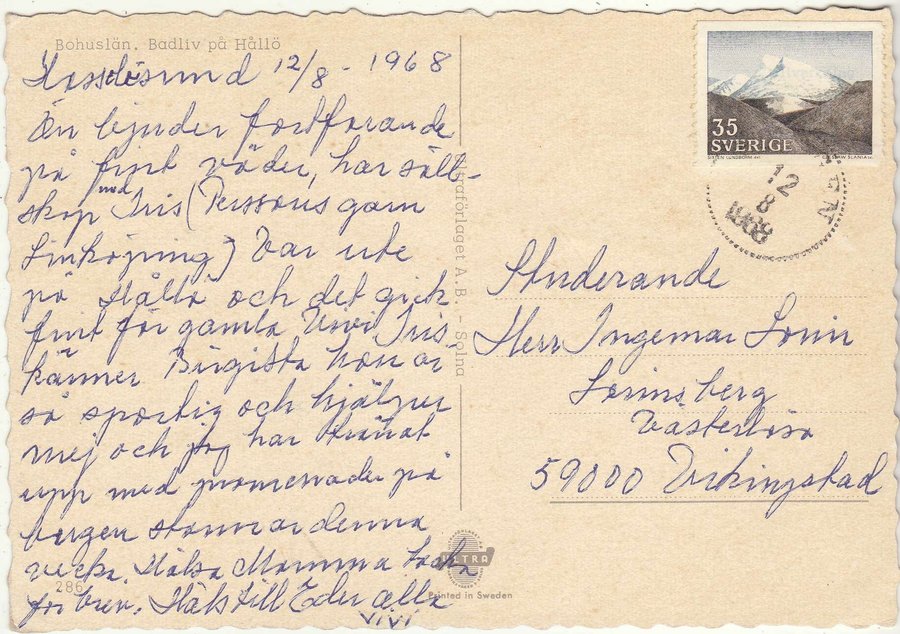 Bohuslän. Badliv på Hållö
12/8 - 1968
Än bjuder fortfarande
på fint väder, har säll-
skap med Iris (Perssons garn
Linköping) Var ute
på Hållö och det gick
fint för gamla Vivi Iris
känner Birgitta hon är
så sportig och hjälper
mej och jag har tränat
upp med promenader på
bergen stannar denna
vecka. Hälsa Mamma tacka
för brev. Hälsn till Eder alla
VIVI
286
Ultraförlaget A.B. - Solna
ULTRA
Printed in Sweden
35
SVERIGE
CZESLAW SLANIA sc.
12
8
1968
Studerande
Herr Ingemar Lorin
Lorinsberg
Västerlösa
59000 Vikingstad